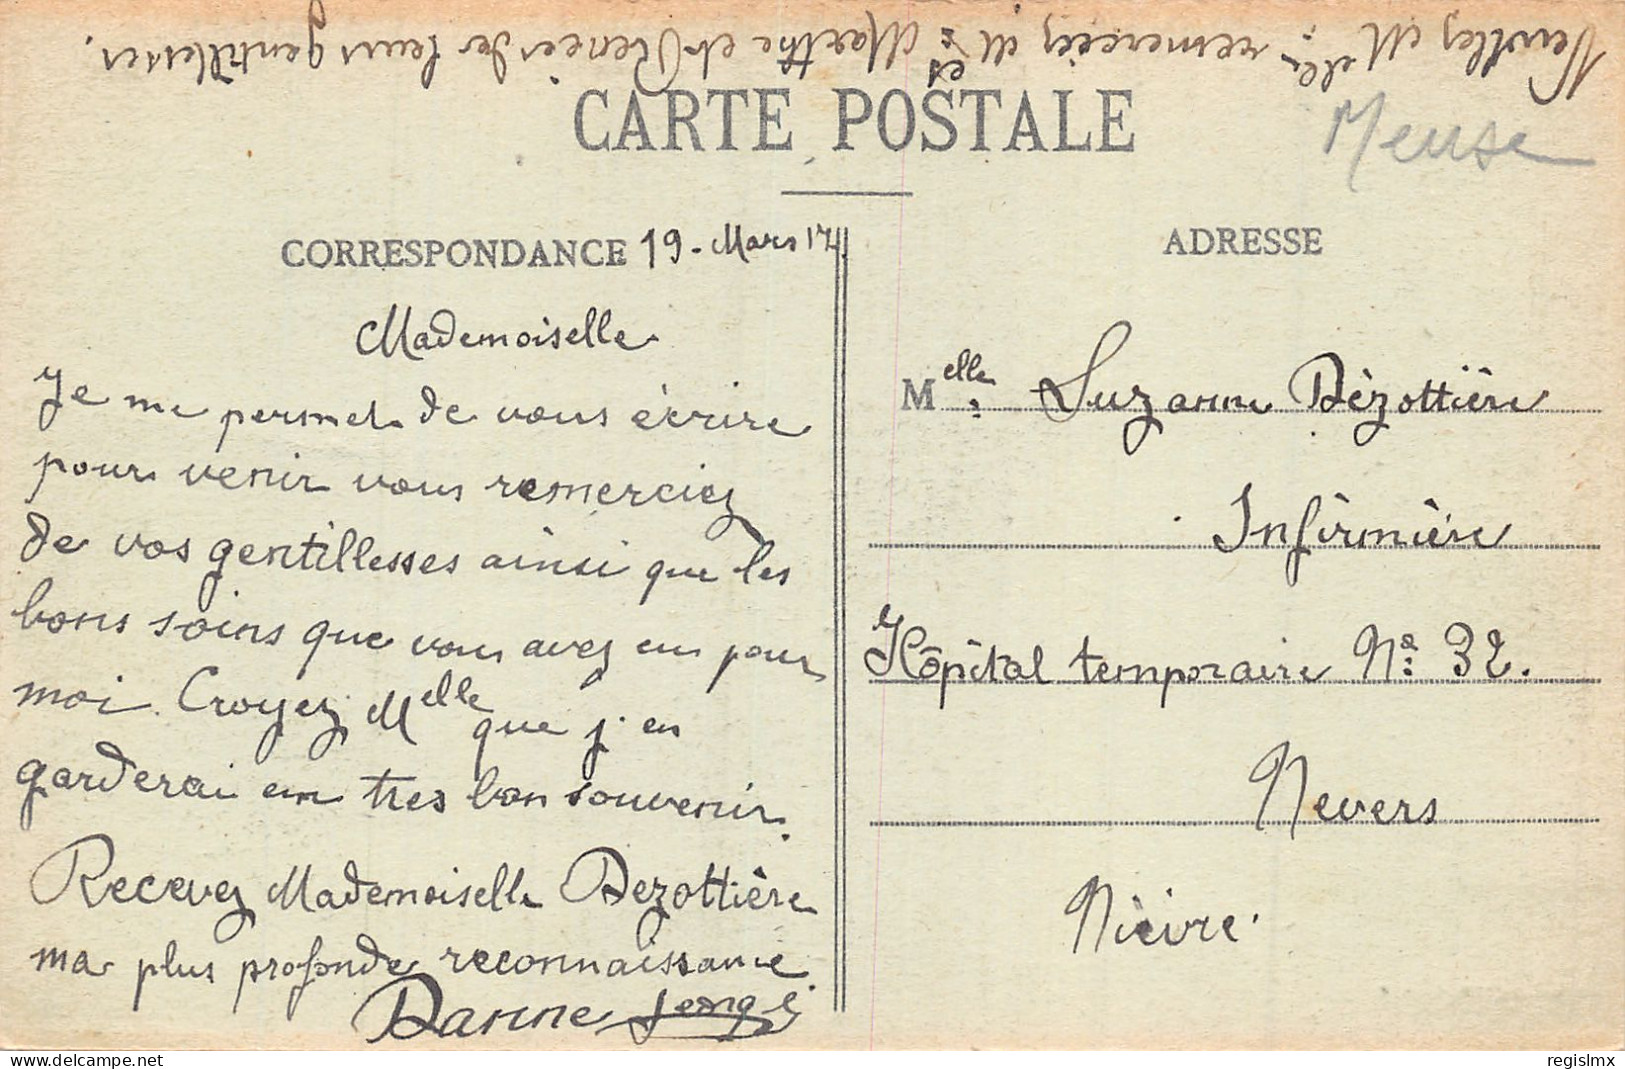 Veuillez M elle remerciez M es Marthe et Renée de leurs gentillesses.
CARTE POSTALE
Meuse
CORRESPONDANCE 19 - Mars 17
Mademoiselle
Je me permet de vous écrire
pour venir vous remerciez
de vos gentillesses ainsi que les
bons soins que vous avez eu pour
moi. Croyez Melle que j'en
garderai un tres bon souvenir.
Recevez Mademoiselle Bezottière
ma plus profonde reconnaissance
ADRESSE
Melle Suzanne Bèzottière
Infirmière
Hôpital temporaire No 32.
Nevers
Nièvre.
delcampe.net
regislmx